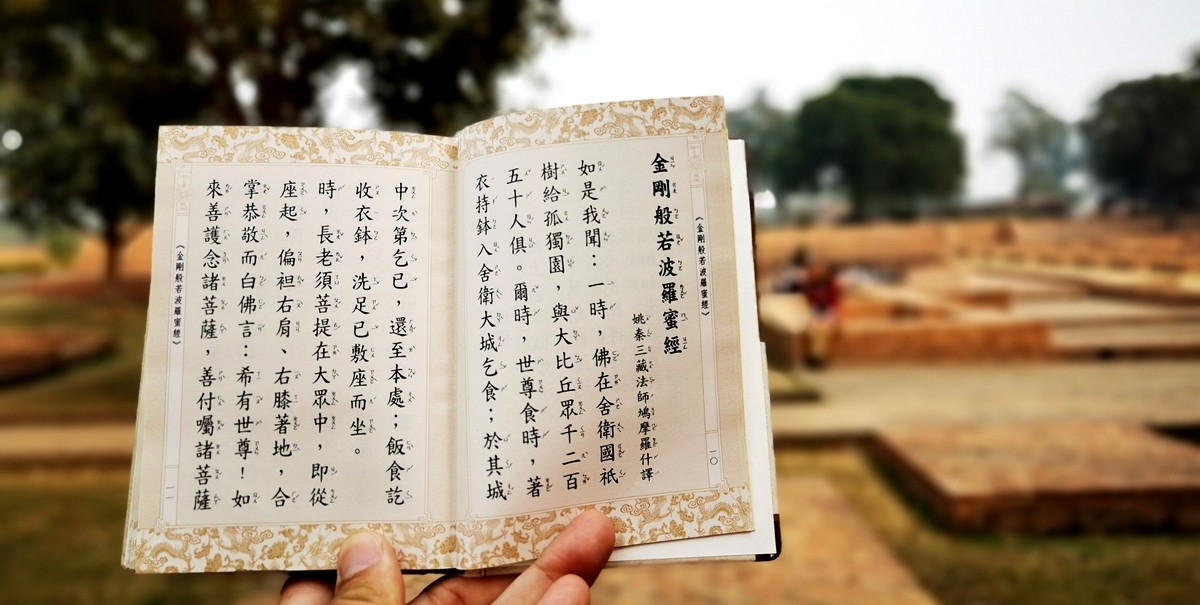 《金剛般若波羅蜜經》
一〇
金剛般若波羅蜜經
姚秦三藏法師鳩摩羅什譯
如是我聞：一時，佛在舍衛國祇
樹給孤獨園，與大比丘眾千二百
五十人俱。爾時，世尊食時，著
衣持鉢入舍衛大城乞食；於其城
中次第乞已，還至本處；飯食訖
收衣鉢，洗足已敷座而坐。
時，長老須菩提在大眾中，即從
座起，偏袒右肩、右膝著地，合
掌恭敬而白佛言：希有世尊！如
來善護念諸菩薩，善付囑諸菩薩
《金剛般若波羅蜜經》
一一